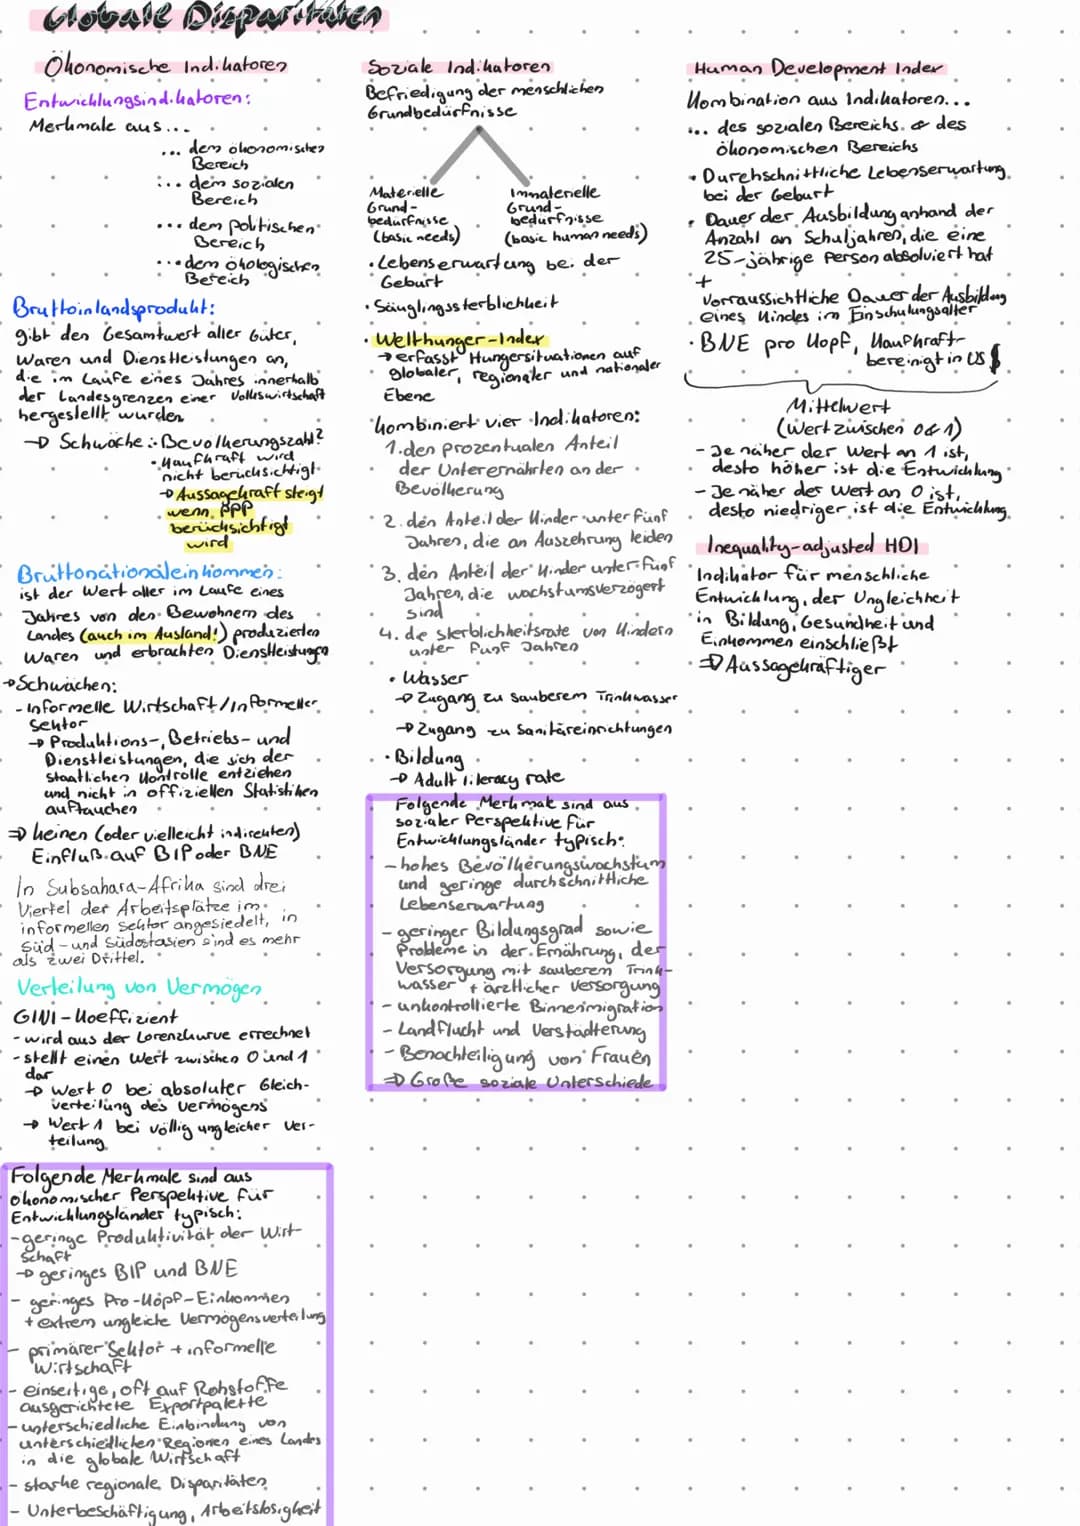 Globale Disparitäten
Ökonomische Indikatoren
Entwicklungsindikatoren:
Merkmale aus...
... dem ökonomischen
Bereich
... dem sozialen
Bereich
... dem politischen
Bereich
... dem ökologischen
Bereich
Bruttoinlandsprodukt:
gibt den Gesamtwert aller Güter,
Waren und Dienstleistungen an,
die im Laufe eines Jahres innerhalb
der Landesgrenzen einer Volkswirtschaft
hergestellt wurden
→ Schwäche: • Bevölkerungszahl?
• Kaufkraft wird
nicht berücksichtigt
→ Aussagekraft steigt
wenn PPP
berücksichtigt
wird
Bruttonationaleinkommen:
ist der Wert aller im Laufe eines
Jahres von den Bewohnern des
Landes (auch im Ausland!) produzierten
Waren und erbrachten Dienstleistungen
→ Schwächen:
- Informelle Wirtschaft/Informeller
Sektor
→ Produktions-, Betriebs- und
Dienstleistungen, die sich der
staatlichen Kontrolle entziehen
und nicht in offiziellen Statistiken
auftauchen
⇒ keinen (oder vielleicht indirekten)
Einfluß auf BIP oder BNE
In Subsahara-Afrika sind drei
Viertel der Arbeitsplätze im
informellen Sektor angesiedelt, in
Süd- und Südostasien sind es mehr
als zwei Drittel.
Verteilung von Vermögen
GINI-Koeffizient
- wird aus der Lorenzkurve errechnet
- stellt einen Wert zwischen 0 und 1
dar
→ Wert 0 bei absoluter Gleich-
verteilung des Vermögens
→ Wert 1 bei völlig ungleicher Ver-
teilung
Folgende Merkmale sind aus
ökonomischer Perspektive für
Entwicklungsländer typisch:
- geringe Produktivität der Wirt-
schaft
→ geringes BIP und BNE
- geringes Pro-Kopf-Einkommen
+ extrem ungleiche Vermögensverteilung
- primärer Sektor + informelle
Wirtschaft
- einseitige, oft auf Rohstoffe
ausgerichtete Exportpalette
- unterschiedliche Einbindung von
unterschiedlichen Regionen eines Landes
in die globale Wirtschaft
- starke regionale Disparitäten
- Unterbeschäftigung, Arbeitslosigkeit
Soziale Indikatoren
Befriedigung der menschlichen
Grundbedürfnisse
Materielle
Grund-
bedürfnisse
(basic needs)
Immaterielle
Grund-
bedürfnisse
(basic human needs)
• Lebenserwartung bei der
Geburt
• Säuglingssterblichkeit
• Welthunger-Index
→ erfasst Hungersituationen auf
globaler, regionaler und nationaler
Ebene
kombiniert vier Indikatoren:
1. den prozentualen Anteil
der Unterernährten an der
Bevölkerung
2. den Anteil der Kinder unter fünf
Jahren, die an Auszehrung leiden
3. den Anteil der Kinder unter fünf
Jahren, die wachstumsverzögert
sind
4. die Sterblichkeitsrate von Kindern
unter fünf Jahren
• Wasser
→ Zugang zu sauberem Trinkwasser
→ Zugang zu Sanitäreinrichtungen
• Bildung
→ Adult literacy rate
Folgende Merkmale sind aus
sozialer Perspektive für
Entwicklungsländer typisch:
- hohes Bevölkerungswachstum
und geringe durchschnittliche
Lebenserwartung
- geringer Bildungsgrad sowie
Probleme in der Ernährung, der
Versorgung mit sauberem Trink-
wasser + ärztlicher Versorgung
- unkontrollierte Binnenmigration
- Landflucht und Verstädterung
- Benachteiligung von Frauen
⇒ Große soziale Unterschiede
Human Development Index
Kombination aus Indikatoren...
... des sozialen Bereichs & des
ökonomischen Bereichs
• Durchschnittliche Lebenserwartung
bei der Geburt
• Dauer der Ausbildung anhand der
Anzahl an Schuljahren, die eine
25-jährige Person absolviert hat
+
vorraussichtliche Dauer der Ausbildung
eines Kindes im Einschulungsalter
• BNE pro Kopf, Kaufkraft-
bereinigt in US $
Mittelwert
(Wert zwischen 0 & 1)
- Je näher der Wert an 1 ist,
desto höher ist die Entwicklung
- Je näher der Wert an 0 ist,
desto niedriger ist die Entwicklung
Inequality-adjusted HDI
Indikator für menschliche
Entwicklung, der Ungleichheit
in Bildung, Gesundheit und
Einkommen einschließt
⇒ Aussagekräftiger